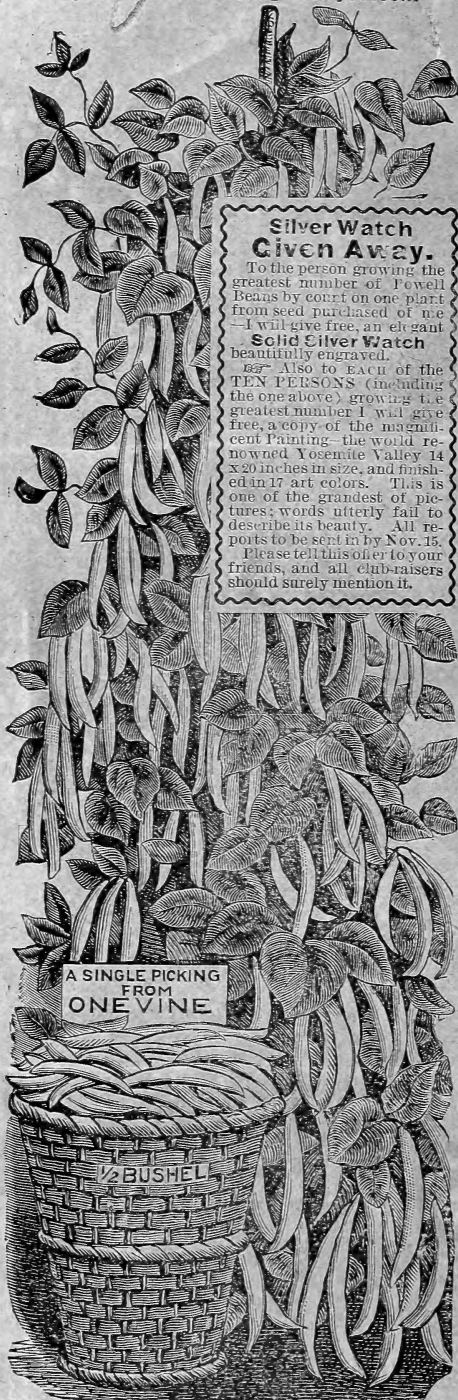 Silver Watch
Given Away.
To the person growing the
greatest number of Powell
Beans by count on one plant
from seed purchased of me
—I will give free, an elegant
Solid Silver Watch
beautifully engraved.
☞ Also to EACH of the
TEN PERSONS (including
the one above) growing the
greatest number I will give
free, a copy of the magnifi-
cent Painting—the world re-
nowned Yosemite Valley 14
x 20 inches in size, and finish-
ed in 17 art colors. This is
one of the grandest of pic-
tures; words utterly fail to
describe its beauty. All re-
ports to be sent in by Nov. 15.
Please tell this offer to your
friends, and all club-raisers
should surely mention it.
A SINGLE PICKING
FROM
ONE VINE
½ BUSHEL